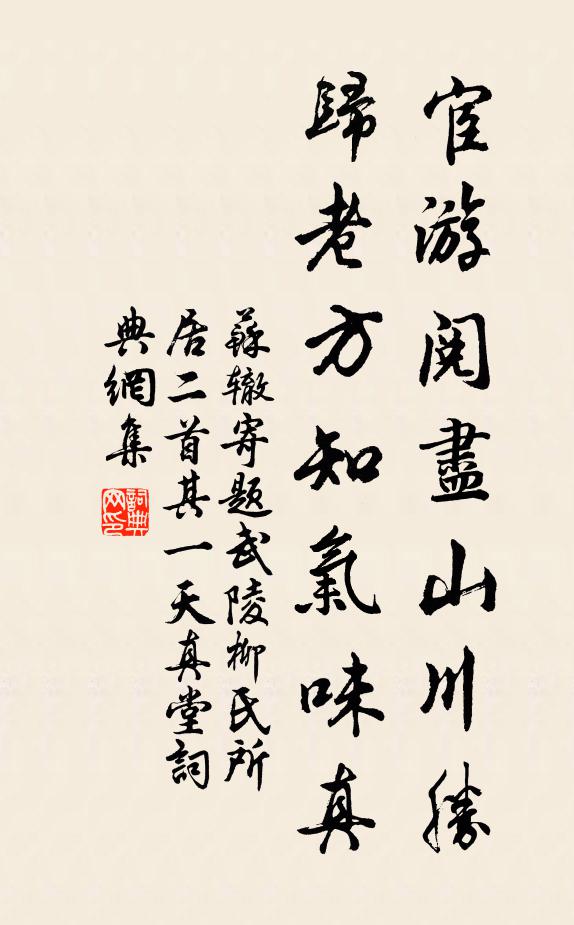 宦游閱盡山川勝
歸老方知氣味真
蘇辙寄题武陵柳氏所
居二首其一天真堂詞
典網集
詞典
网印